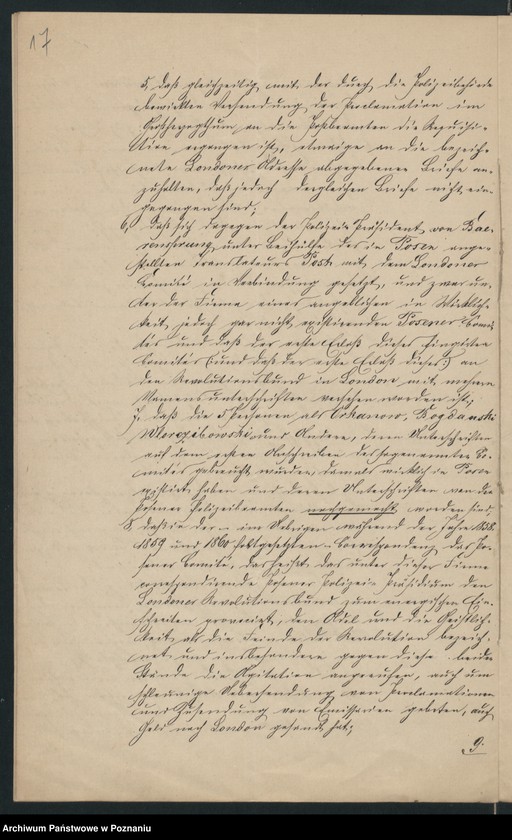 17
5, daß gleichzeitig mit der durch die Polizeibehörde
bewirkten Versendung der Proclamation im
Großherzogthum an die Postbeamten die Requisi-
tion ergangen ist, etwaige an die bezeich-
nete Londoner Adresse abgegebene Briefe an-
zuhalten, daß jedoch dergleichen Briefe nicht ein-
gegangen sind;
6, daß sich dagegen der Polizei-Präsident von Bae-
rensprung unter Beihülfe des in Posen ange-
stellten Translateurs Post mit dem Londoner
Comité in Verbindung gesetzt, und zwar un-
ter der Firma eines angeblichen in Wirklich-
keit jedoch gar nicht existirenden Posener Comi-
tés und daß der erste Erlaß dieses fingirten
Comités (: und daß der erste Erlaß dieses :) an
den Revolutionsbund in London mit mehrern
Namensunterschriften versehen worden ist;
7, daß die Personen als Bogdanski
und Andere, deren Unterschriften
auf dem ersten Anschreiben des sogenannten Co-
mités gebraucht wurden, damals wirklich in Posen
existirt haben und deren Unterschriften von den
Posener Polizeibeamten nachgemacht worden sind,
8, daß in der – im Uebrigen während der Jahre 1858.
1859 und 1860 fortgesetzten – Correspondenz das Po-
sener Comité, das heißt das unter dieser Firma
correspondirende Posener Polizei-Präsidium den
Londoner Revolutionsbund zum energischen Ein-
schreiten provocirt, den Adel und die Geistlich-
keit als die Feinde der Revolution bezeich-
net und insbesondere gegen diese beiden
Stände die Agitation angerufen, auch um
schleunige Uebersendung von Proclamationen
und Zusendung von Emissarien gebeten, auch
Geld nach London gesandt hat;
9.
Archiwum Państwowe w Poznaniu